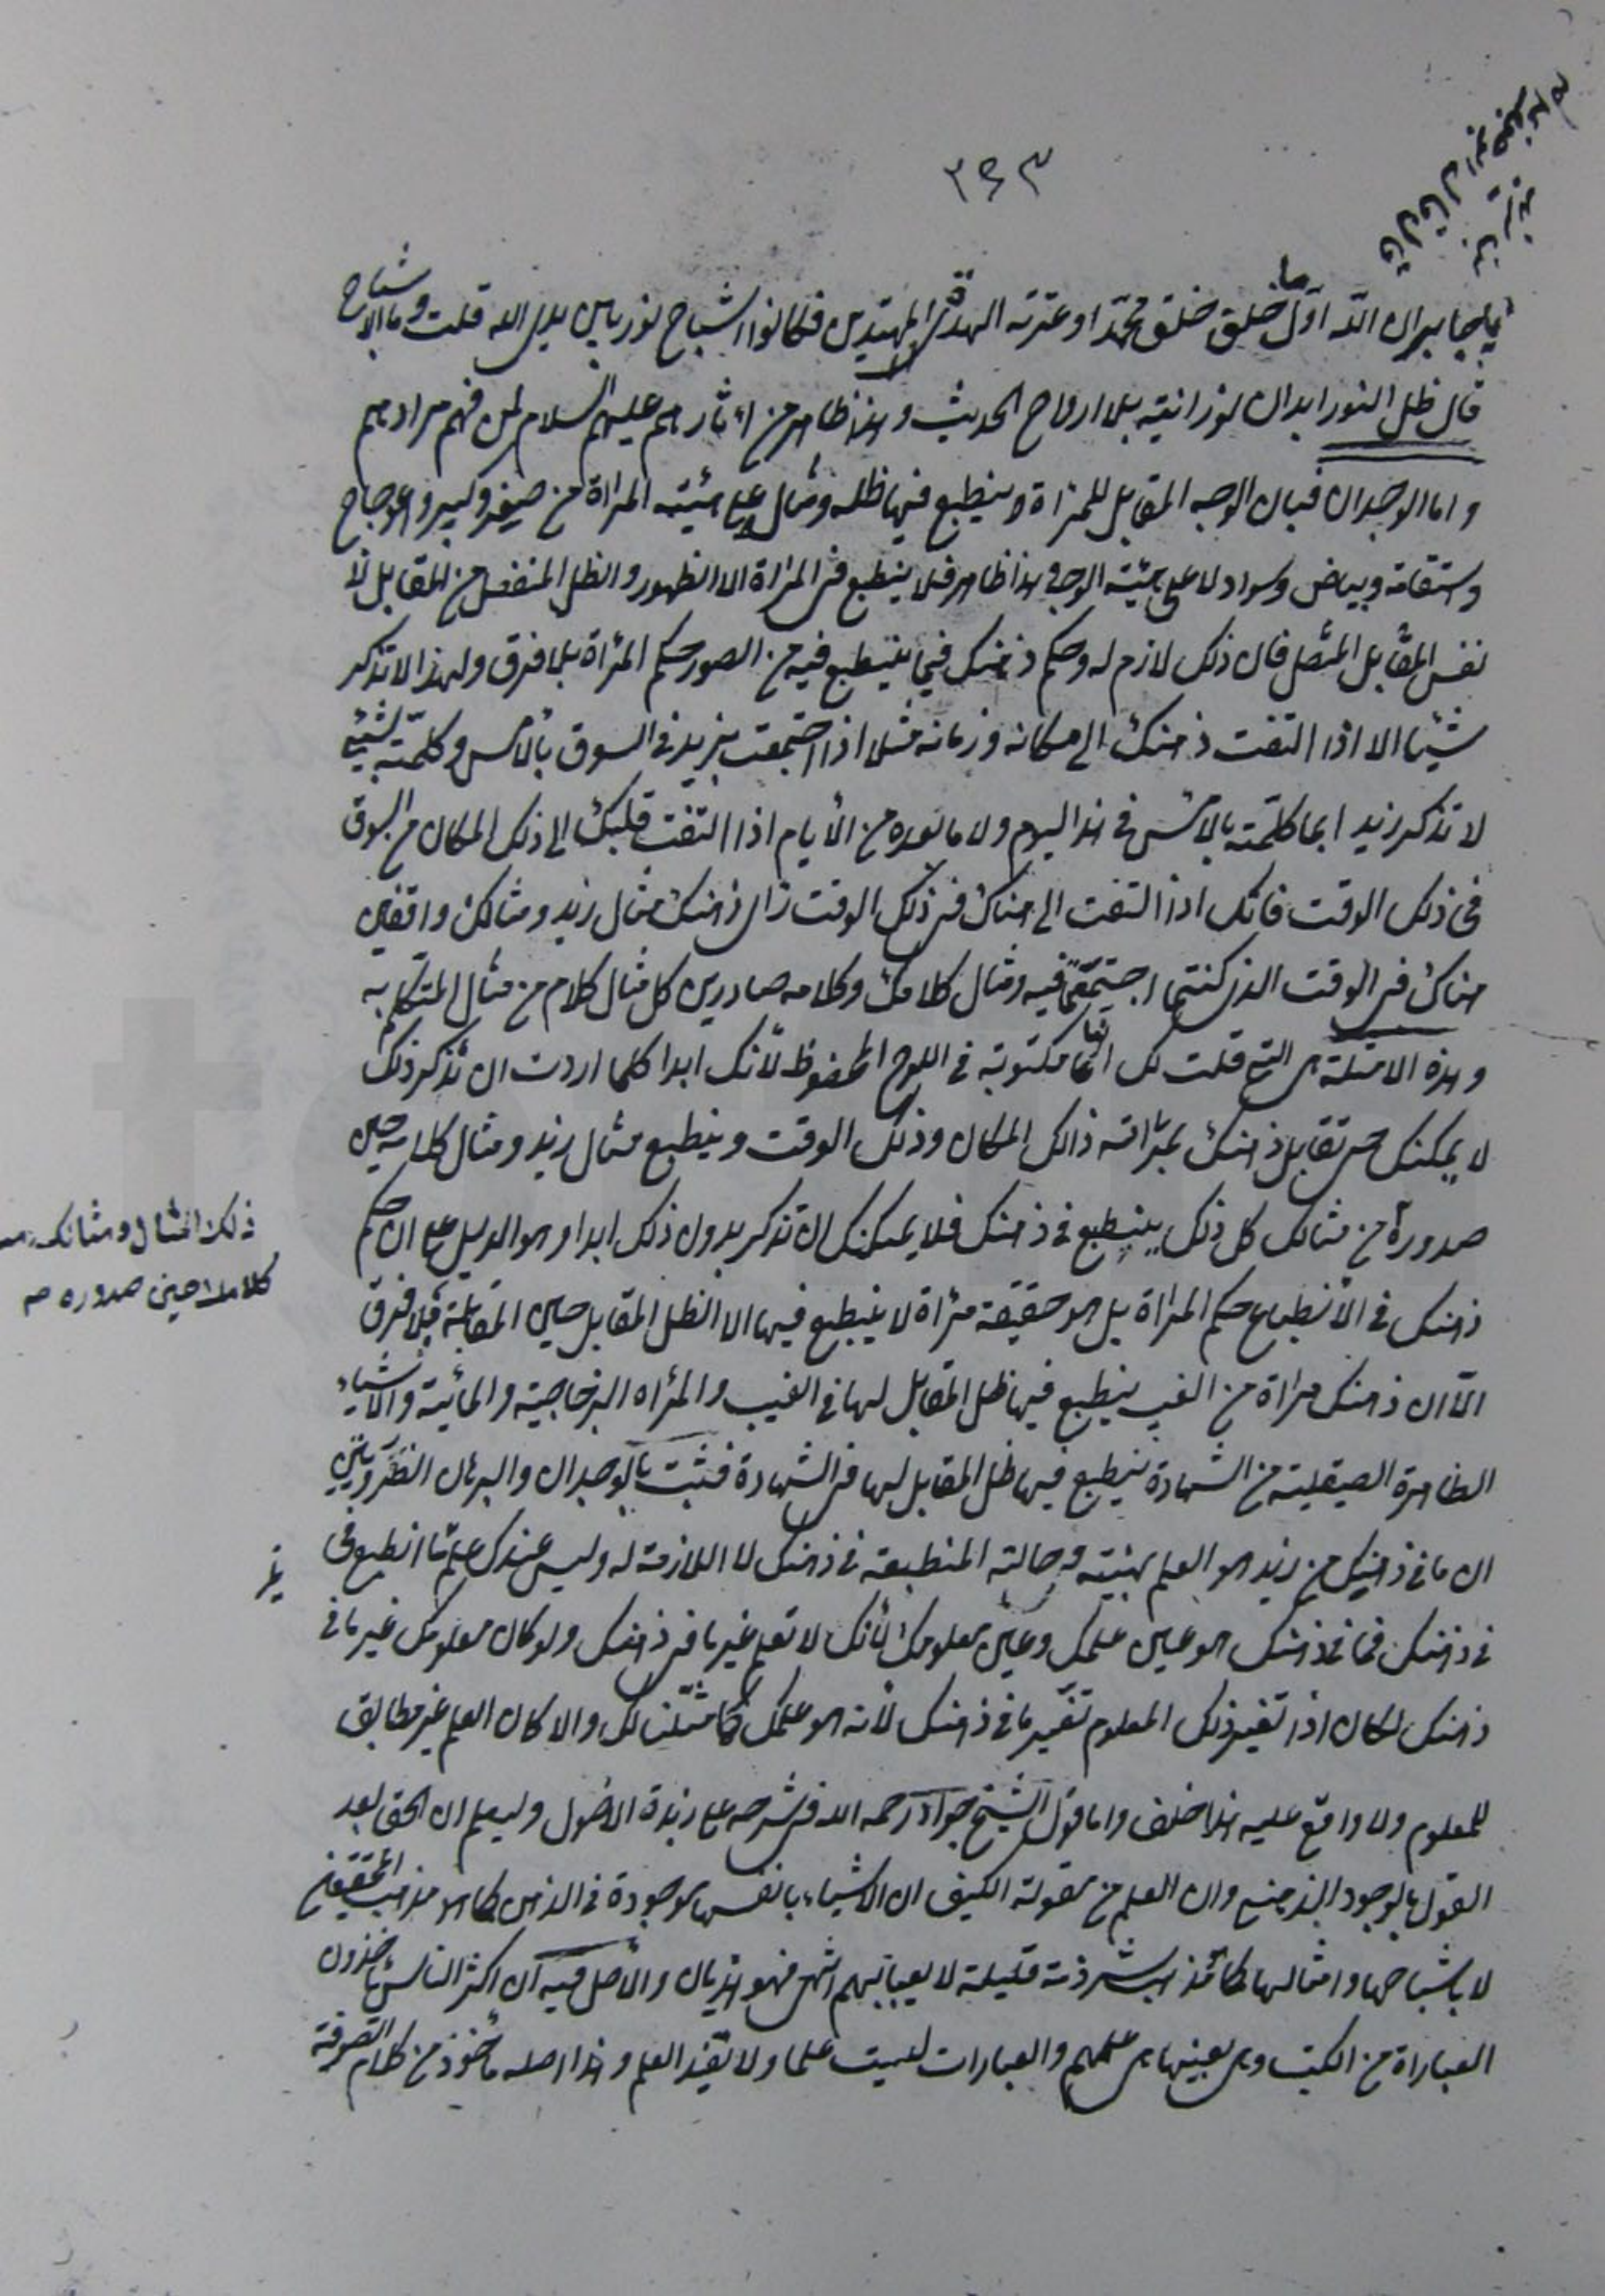 ٢٩٣
يا جابر ان الله اول ما خلق خلق محمدا وعترته الهداة المهتدين فكانوا اشباح نور بين يدي الله قلت وما الاشباح
قال ظل النور ابدان نورانية بلا ارواح الحديث وهذا ظاهر من اثارهم عليهم السلام لمن فهم مرادهم
واما الوجدان فبان الوجه المقابل للمرآة وينطبع فيها ظله ومثاله على هيئة المرآة من صغير وكبير واعوجاج
واستقامة وبياض وسواد لا على هيئة الوجه وهذا ظاهر فلا ينطبع في المرآة الا الظهور والظل المنفصل من المقابل لا
نفس المقابل المتصل فان ذلك لازم له وحكم ذهنك فيما ينطبع فيه من الصور حكم المرآة بلا فرق ولهذا لا تذكر
شيئا الا اذا التفت ذهنك الى مكانه وزمانه مثلا اذا اجتمعت بزيد في السوق بالامس وكلمته بشيء
لا تذكر زيد ابما كلمته بالامس في هذا اليوم ولا ما بعده من الأيام اذا التفت قلبك الى ذلك المكان من السوق
في ذلك الوقت فانك اذا التفت الى هناك في ذلك الوقت رأى ذهنك مثال زيد ومثالك واقفين
هناك في الوقت الذي كنتما اجتمعتما فيه ومثال كلامك وكلامه صادرين كل مثال كلام من مثال المتكلم به
وهذه الامثلة هي التي قلت لك انها مكتوبة في اللوح المحفوظ لانك ابدا كلما اردت ان تذكر ذلك
لا يمكنك حتى تقابل ذهنك بمرآته ذالك المكان وذلك الوقت وينطبع مثال زيد ومثال كلامه حين
صدوره من مثالك كل ذلك ينطبع في ذهنك فلا يمكنك ان تذكر بدون ذلك ابدا وهو الدليل على ان حكم
ذلك المثال ومثالك
كلامك حين صدوره
ذهنك في الأنطباع حكم المرآة بل هو حقيقة مرآة لا ينطبع فيها الا الظل المقابل حين المقابلة بلا فرق
الا ان ذهنك مرآة من الغيب ينطبع فيها ظل المقابل لها في الغيب والمرآه الزجاجية والمائية والاشياء
الظاهرة الصيقلية من الشهادة ينطبع فيها ظل المقابل لها في الشهادة فثبت بالوجدان والبرهان الضروريين
ان ما في ذهنك من زيد هو العلم بهيئته وحالته المنطبعة في ذهنك لا اللازمة له وليس عندك علم ما انطبع في
في ذهنك فما في ذهنك هو عين علمك وعين معلومك لأنك لا تعلم غير ما في ذهنك ولو كان معلومك غير ما في
ذهنك لكان اذا تغير ذلك المعلوم تغير ما في ذهنك لأنه هو علمك كما مثلنا لك والا كان العلم غير مطابق
للمعلوم ولا واقع عليه هذا خلف واما قول الشيخ جواد رحمه الله في شرحه على زبدة الاصول وليعلم ان الحق بعد
القول بالوجود الذهني وان العلم من مقولة الكيف ان الاشياء بانفسها موجودة في الذهن كما هو مذهب المحققين
لا باشباحها وامثالها كما هو مذهب شرذمة قليلة لا يعبأ بهم انتهى فهو هذيان والأصل فيه ان اكثر الناس يأخذون
العباراة من الكتب وهي بعينها هي علمهم والعبارات ليست علما ولا تفيد العلم وهذا اصله مأخوذ من كلام الصوفية